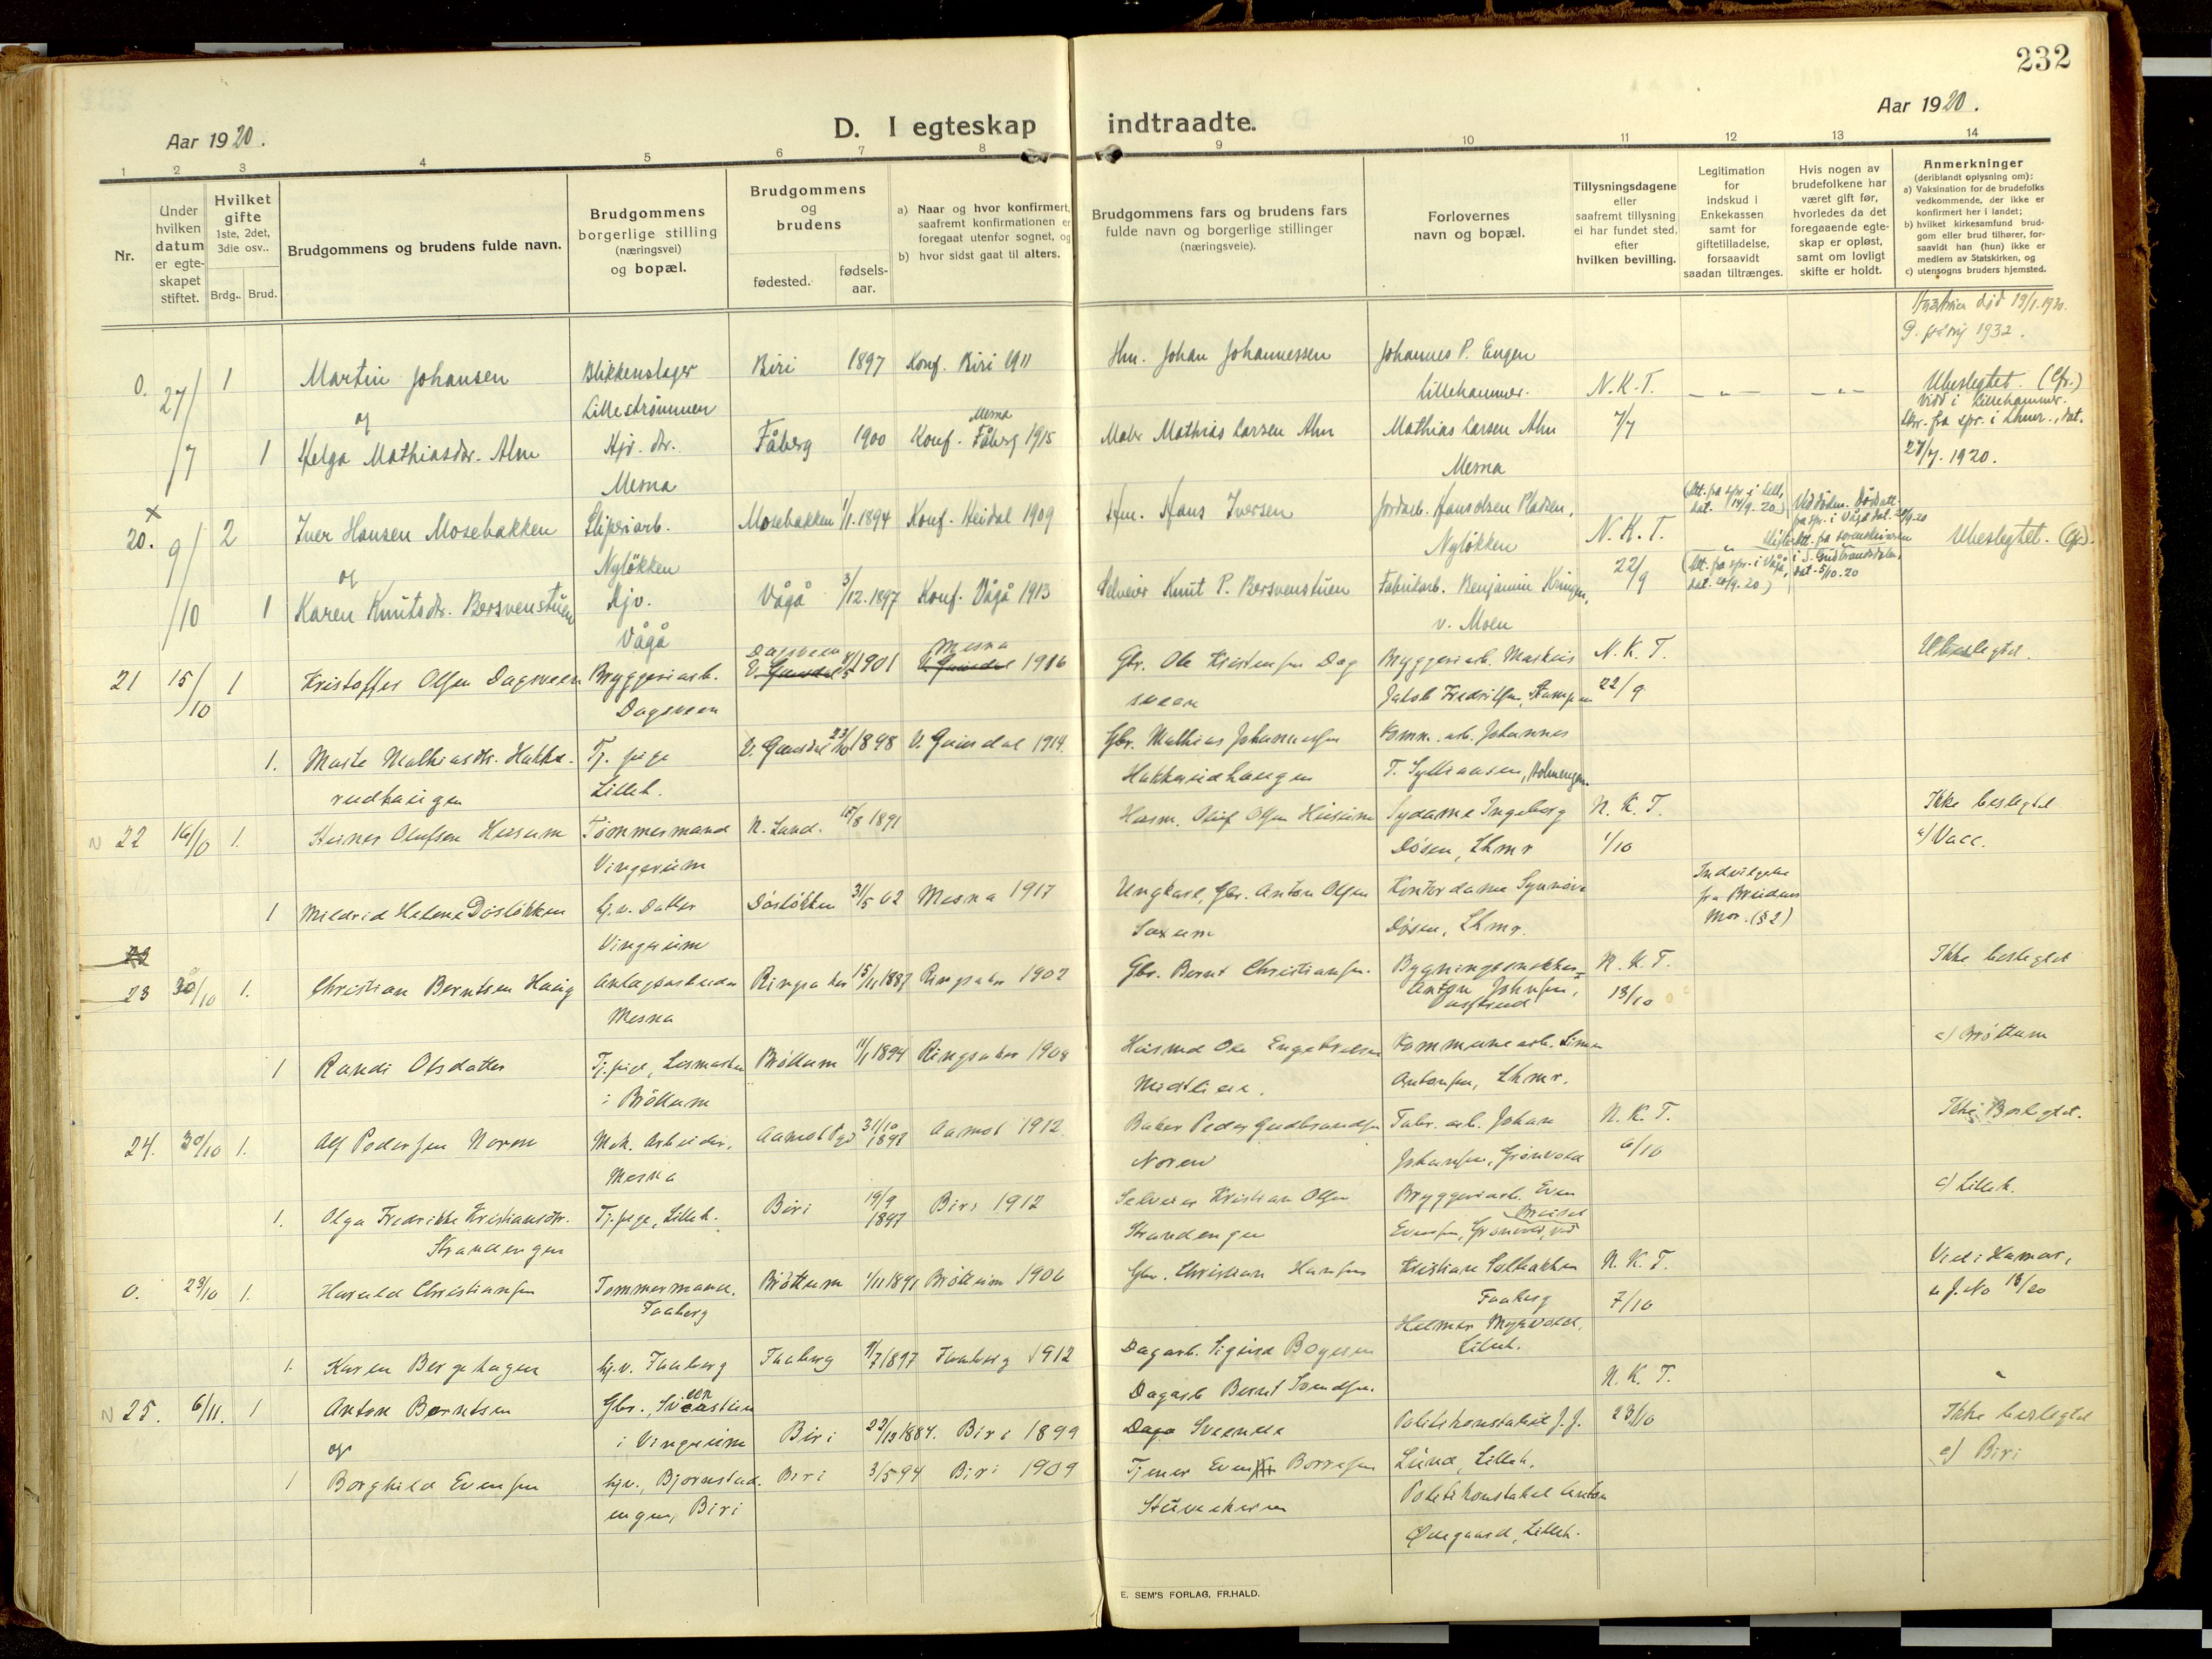 232
Aar 1920.
D. I egteskap indtraadte.
Aar 1920.
1 2 3 4 5 6 7 8 9 10 11 12 13 14
Nr.
Under hvilken datum er egteskapet stiftet.
Hvilket gifte 1ste, 2det, 3die osv..
Brdg.. Brud.
Brudgommens og brudens fulde navn.
Brudgommens borgerlige stilling (næringsvei) og bopæl.
Brudgommens og brudens
fødested.
fødsels-aar.
a) Naar og hvor konfirmert, saafremt konfirmationen er foregaat utenfor sognet, og
b) hvor sidst gaat til alters.
Brudgommens fars og brudens fars fulde navn og borgerlige stillinger (næringsveie).
Forlovernes navn og bopæl.
Tillysningsdagene eller saafremt tillysning ei har fundet sted, efter hvilken bevilling.
Legitimation for indskud i Enkekassen samt for giftetilladelse, forsaavidt saadan tiltrænges.
Hvis nogen av brudefolkene har været gift før, hvorledes da det foregaaende egteskap er opløst, samt om lovligt skifte er holdt.
Anmerkninger
(deriblandt oplysning om):
a) Vaksination for de brudefolks vedkommende, der ikke er konfirmert her i landet;
b) hvilket kirkesamfund brudgom eller brud tilhører, forsaavidt han (hun) ikke er medlem av Statskirken, og
c) utensogns bruders hjemsted.
død 19/1.1930.
1932.
0. 27/ 1 Martin Johansen Blikkenslager Biri 1897 Konf. Biri 1911 Hm. Johan Johannessen Johannes P. Engen
og Lillestrømmen Lillehammer. N.K.T. Ubeslegtet. (Gfr.)
Viet i Lillehammer.
/7 1 Helga Mathiasdr. Alm Hjv. dtr. Fåberg 1900 Konf. Mesna Fåberg 1915 Mathias Larsen Alm Mathias Larsen Alm 7/7 fra spr. i Lhmr., dat.
Mesna Mesna 27/7. 1920.
x
20. 9/ 2 Iver Hansen Mosebakken Sliperiarb. Mosebakken 1/1.1894 Konf. Heidal 1909 Hm. Hans Iversen Jordarb. Hans Olsen Pladsen, N.K.T. (Att. fra spr. i Lill, dat. 14/9. 20) Ved døden. Dødsatt. fra spr. i Vågå dat. 20/9.20 Ubeslegtet. (Gfr.)
og Nyløkken Nyløkken Skifteatt. fra sorenskriveren
/10 1 Karen Knutsdr. Bersvenstuen Hjv. Vågå 3/12.1897 Konf. Vågå 1913 Selveier Knut P. Bersvenstuen Fabrikarb. Benjamin Kringen, 22/9 (Att. fra spr. i Vågå, dat. 20/9. 20) i S. Gudbrandsdalen, dat. 5/10.20
Vågå v. Moen
21 15/10 1 Kristoffer Olsen Dagsveen Bryggeriarb. Dagsveen V. Gausdal 1901 Mesna V. Gausdal 1916 Gbr. Ole Kristensen Dag Bryggeriarb. N.K.T. Ubeslegtet.
Dagsveen sveen Jakob Fredriksen, 22/9
1. Marte Mathiasdr. Hakke- Tj. pige V. Gausdal 23/10 1898 V. Gausdal 1914. Gbr. Mathias Johannessen Komm. arb. Johannes
rudhaugen Lilleh. Hakkerudhaugen T. Sylliaasen, Holmengen.
N 22 16/10 1. Olufsen Huseum Tømmermand N. Land. 15/8 1891 Husm. Oluf Olsen Sydame Ingeborg N.K.T. Ikke beslegtet
Vingerum Døsen, Lhmr 1/10 a) Vacc.
1 Mildrid Helene Døsløkken hj.v. Datter Døsløkken 31/5 02 Mesna 1917 Ungkarl, Gbr. Anton Olsen Kontordame Synnøve Indvilgelse fra Brudens Mor. (§2)
Vingerum Saxum Døsen, Lhmr.
23
23 30/10 1. Christian Berntsen Haug Anlægsarbeider Ringsaker 15/11 1887 Ringsaker 1902 Gbr. Bernt Christiansen. Bygningssnekker N.K.T. Ikke beslegtet
Mesna Anton Johnsen, 13/10
1 Randi Olsdatter Tj. pige, Brøttum 11/1 1894 Ringsaker 1908 Husmd Ole Engebretsen Kommunearb. Simen c) Brøttum
i Brøttum Midtlien. Antonsen, Lhmr.
24. 30/10 1. Alf Pedersen Noren Mek. Arbeider, Aamot 31/10 1898 Aamot 1912 Baker Peder Gudbrandsen Fabr. arb. Johan N.K.T. Ikke Beslegtet.
Mesna Noren Johansen, Grønvold 6/10
1. Olga Fredrikke Kristiansdtr. Tj. pige, Lilleh. Biri 19/9 1897 Biri 1912 Selveier Kristian Olsen Bryggeriarb. Even c) Lilleh.
Strandengen Strandengen Evensen, Grønvold, ved
0. 23/10 1. Harald Christiansen Tømmermand. Brøttum 1/11 1891 Brøttum 1906 Gbr. Christian Hansen Kristian Solbakken N.K.T. Viet i Hamar,
Faaberg Faaberg 7/10 J. No 18/20
Helmer Myrvold,
1. Karen Bergehagen hj.v. Faaberg Faaberg 9/7 1897 Faaberg 1912 Dagarb. Sigurd Boyesen Lilleh.
N 25. 6/11. 1 Anton Berntsen Gbr., Sveenstuen Dagarb Bernt Svendsen. N.K.T.
og i Vingerum Biri 22/12 1884. Biri 1899 Daga Sveenda Politikonstabel J. J. 23/10 Ikke beslegtet
1 Borghild Evensen hj.v., Bjørnstad- Biri 3/5 94 Biri 1909 Tjener Even Borresen Lund, Lilleh. c) Biri
engen, Biri Politikonstabel Anton
Ødegaard, Lilleh.
E. SEM'S FORLAG, FR.HALD.